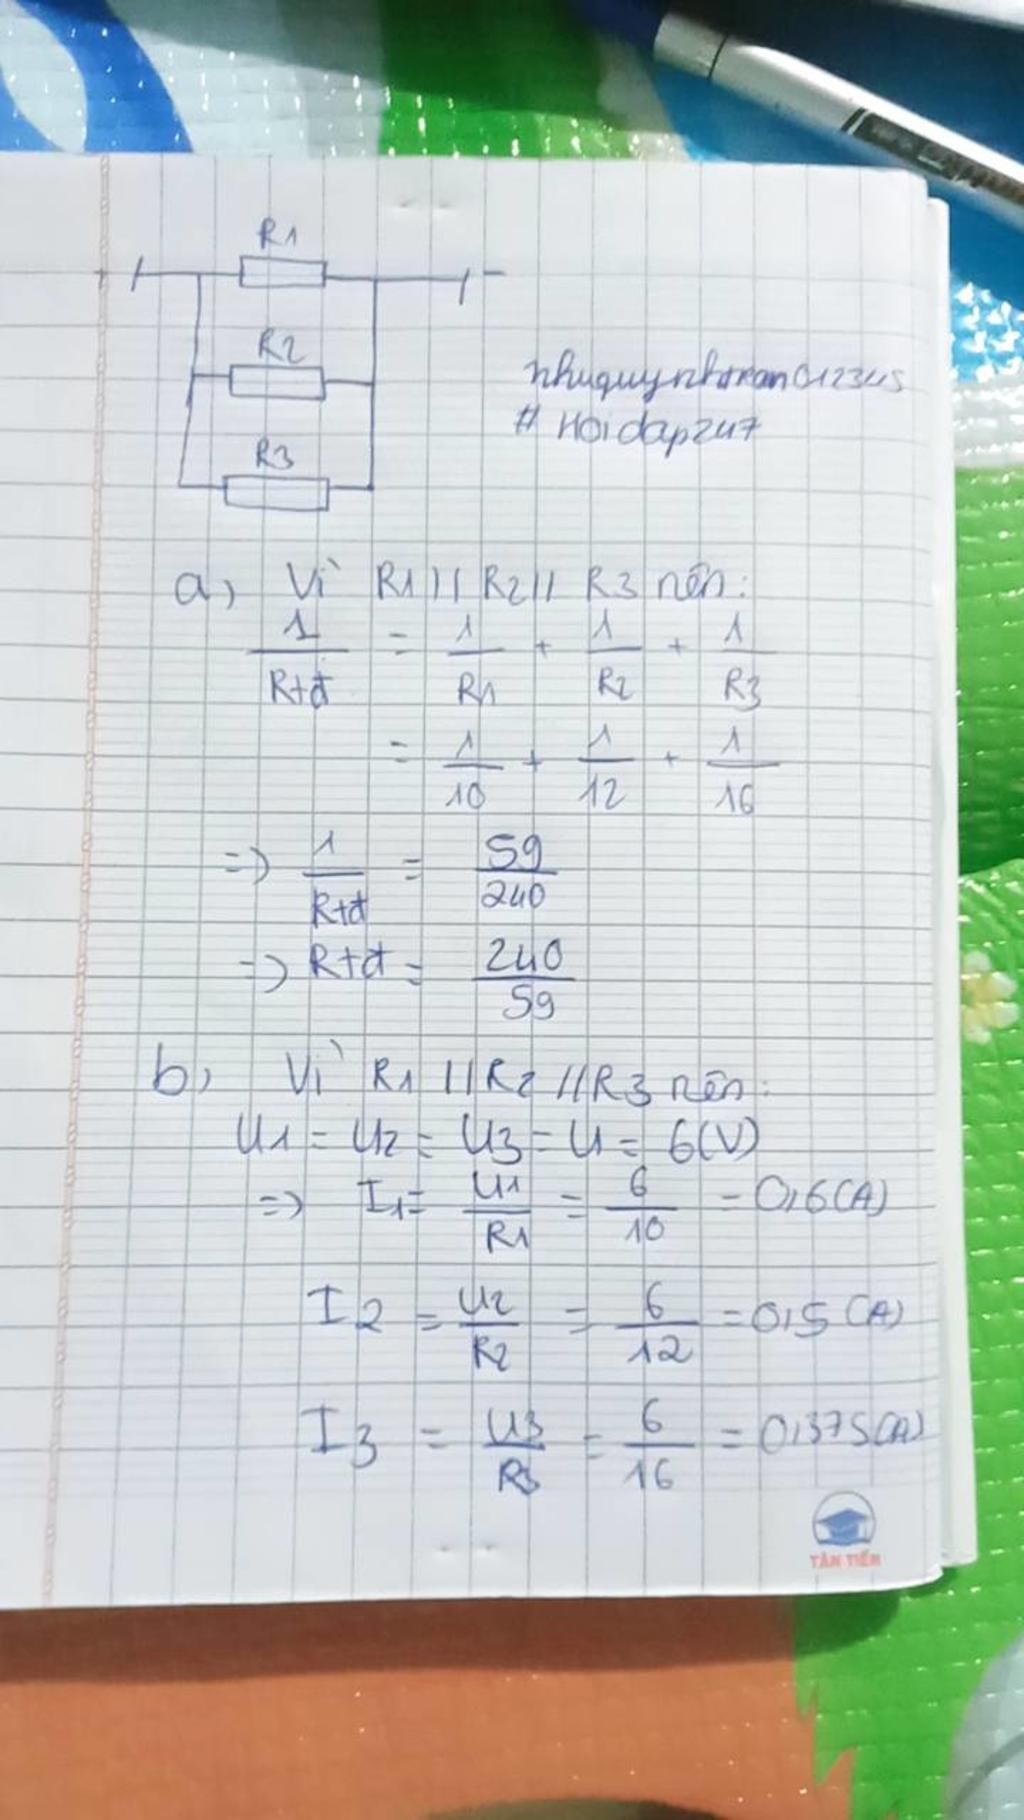 R1
+ -
R2
R3
nhuquynhtran012345
# Hoidap247
a, Vì R1 // R2 // R3 nên:
1/Rtđ = 1/R1 + 1/R2 + 1/R3
= 1/10 + 1/12 + 1/16
=> 1/Rtđ = 59/240
=> Rtđ = 240/59
b, Vì R1 // R2 // R3 nên:
U1 = U2 = U3 = U = 6(V)
=> I1 = U1/R1 = 6/10 = 0,6(A)
I2 = U2/R2 = 6/12 = 0,5(A)
I3 = U3/R3 = 6/16 = 0,375(A)
TÂN TIẾN